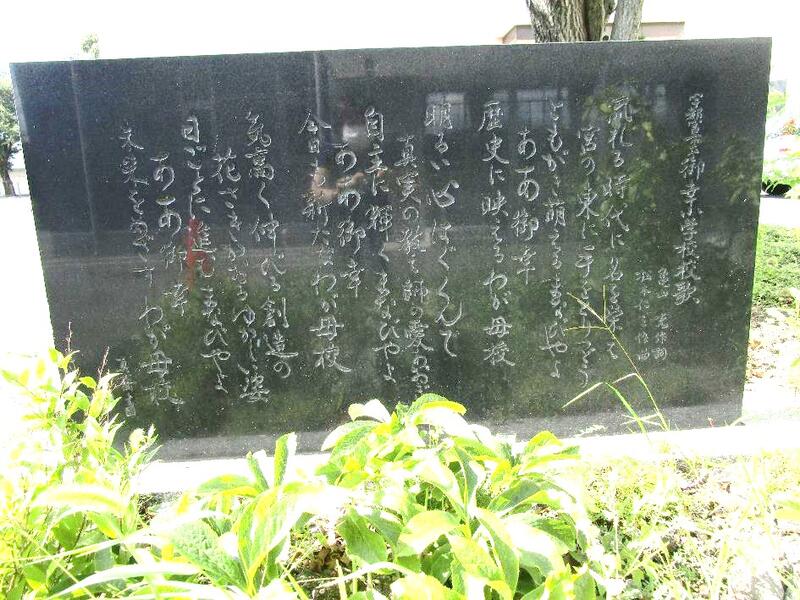 宇都宮市立御幸小学校校歌
亀山 作詞
作曲
流れる時代に名を
宮の東に手をとりつどう
ともがき萌えるまなびやよ
ああ御幸
歴史に映えるわが母校
明るい心はぐくんで
真実の教え師の愛の
自主に輝くまなびやよ
ああ御幸
今日も新たなわが母校
気高く伸びる創造の
花さきかおるゆかしい姿
日ごとに進むまなびやよ
ああ御幸
未来をめざすわが母校